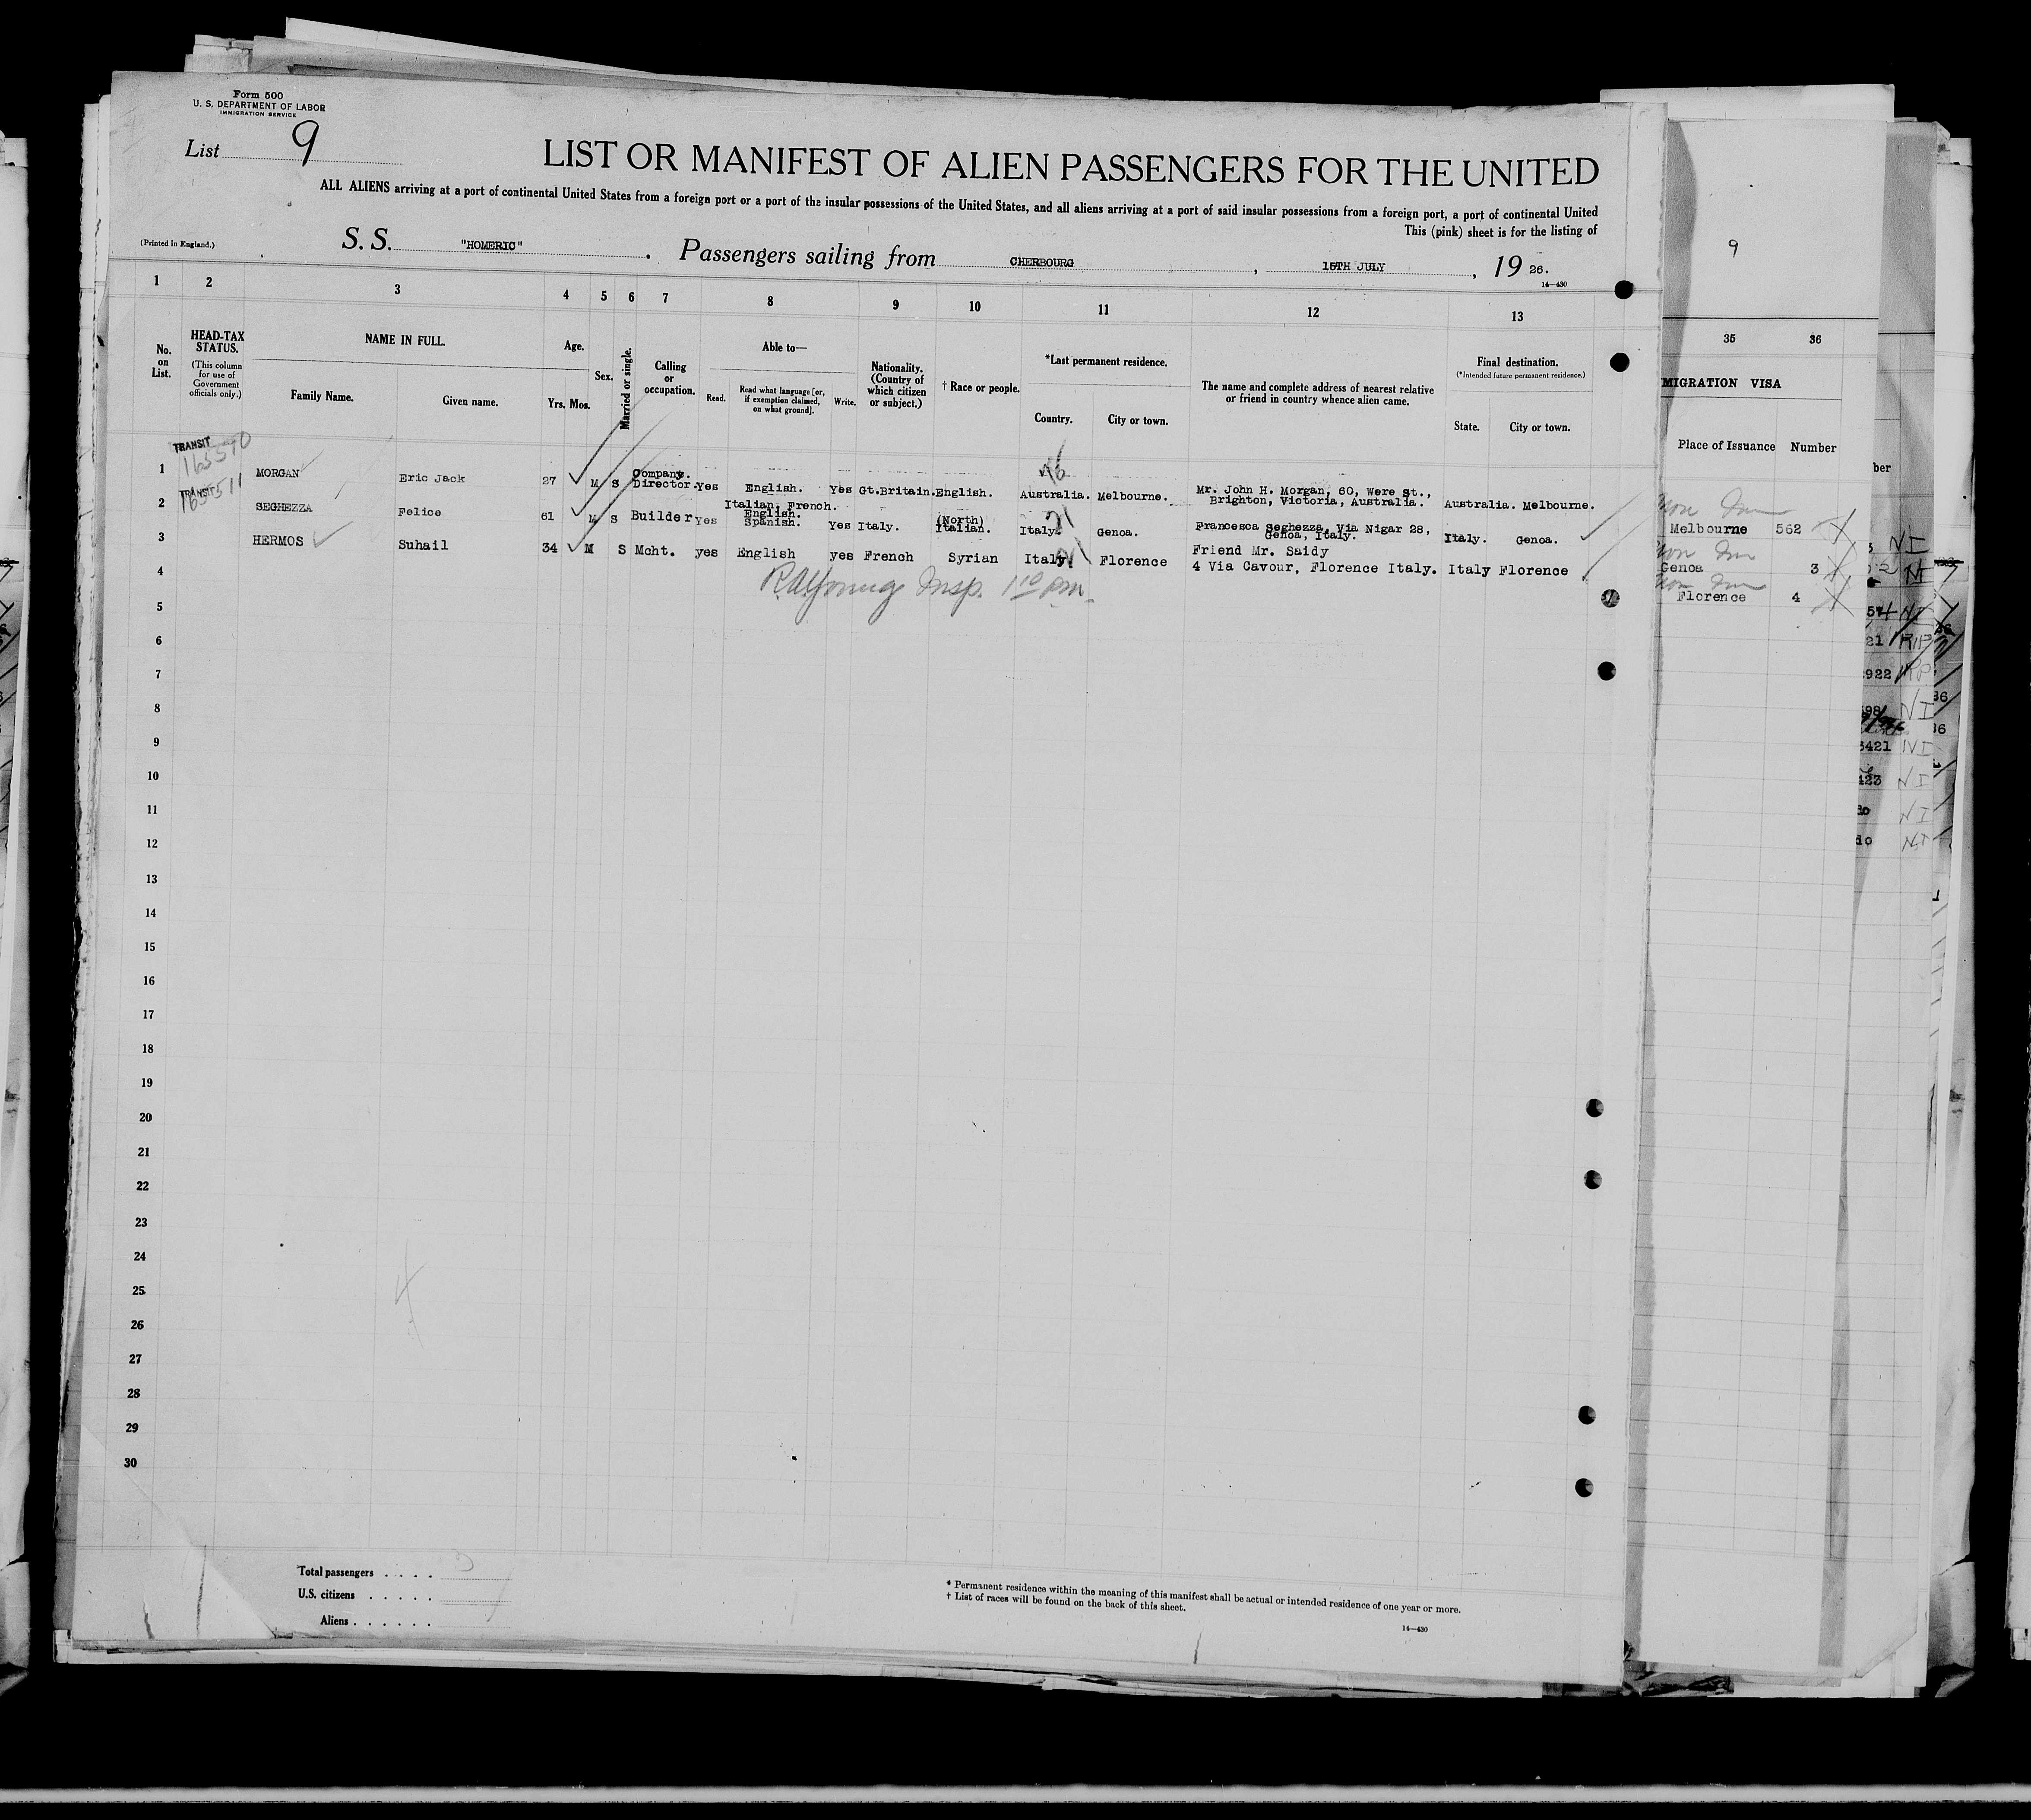 Form 500
U. S. DEPARTMENT OF LABOR
IMMIGRATION SERVICE
List 9
LIST OR MANIFEST OF ALIEN PASSENGERS FOR THE UNITED
ALL ALIENS arriving at a port of continental United States from a foreign port or a port of the insular possessions of the United States, and all aliens arriving at a port of said insular possessions from a foreign port, a port of continental United
This (pink) sheet is for the listing of
(Printed in England.)
S. S. "HOMERIC". Passengers sailing from CHERBOURG, 15TH JULY, 19 26.
14—430
9
1 2 3 4 5 6 7 8 9 10 11 12 13
35 36
No. on List.
HEAD-TAX STATUS.
(This column for use of Government officials only.)
NAME IN FULL.
Family Name. Given name.
Age.
Yrs. Mos.
Sex.
Married or single.
Calling or occupation.
Able to—
Read. Read what language [or, if exemption claimed, on what ground]. Write.
Nationality. (Country of which citizen or subject.)
† Race or people.
*Last permanent residence.
Country. City or town.
The name and complete address of nearest relative or friend in country whence alien came.
Final destination.
(*Intended future permanent residence.)
State. City or town.
MIGRATION VISA
Place of Issuance Number
ber
TRANSIT
165510
1 MORGAN Eric Jack 27 M S Company. Director. Yes English. Yes Gt.Britain. English. Australia. Melbourne. Mr. John H. Morgan, 60, Were St., Brighton, Victoria, Australia. Australia. Melbourne.
Melbourne 562
TRANSIT
165511
2 SEGHEZZA Felice 61 M S Builder Yes Italian. French. English. Spanish. Yes Italy. (North) Italian. Italy. Genoa. Francesca Seghezza, Via Nigar 28, Genoa, Italy. Italy. Genoa.
Genoa 3
3 HERMOS Suhail 34 M S Mcht. yes English yes French Syrian Italy. Florence Friend Mr. Saidy 4 Via Cavour, Florence Italy. Italy Florence
Florence 4
4
Young Insp. 1 10 pm.
5
6
7
8
9
10
11
12
13
14
15
16
17
18
19
20
21
22
23
24
25
26
27
28
29
30
NI
21
922
NI
3421 NI
423 NI
do NI
do NI
Total passengers . . . . 3
U.S. citizens . . . . .
Aliens . . . . . .
* Permanent residence within the meaning of this manifest shall be actual or intended residence of one year or more.
† List of races will be found on the back of this sheet.
14—430